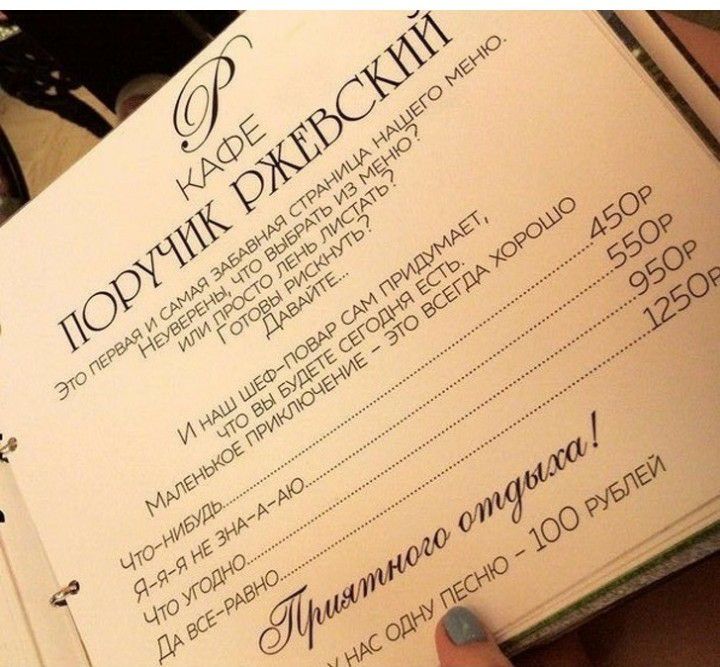 Р
КАФЕ
ПОРУЧИК РЖЕВСКИЙ
Это первая и самая забавная страница нашего меню.
Неуверены, что выбрать из меню?
или просто лень листать?
Готовы рискнуть?
Давайте...
И наш шеф-повар сам придумает,
что вы будете сегодня есть.
Маленькое приключение – это всегда хорошо
Что-нибудь........450р
Я-я-я не зна-а-аю........550р
Что угодно........950р
Да все-равно........1250р
Приятного отдыха!
у нас одну песню – 100 рублей